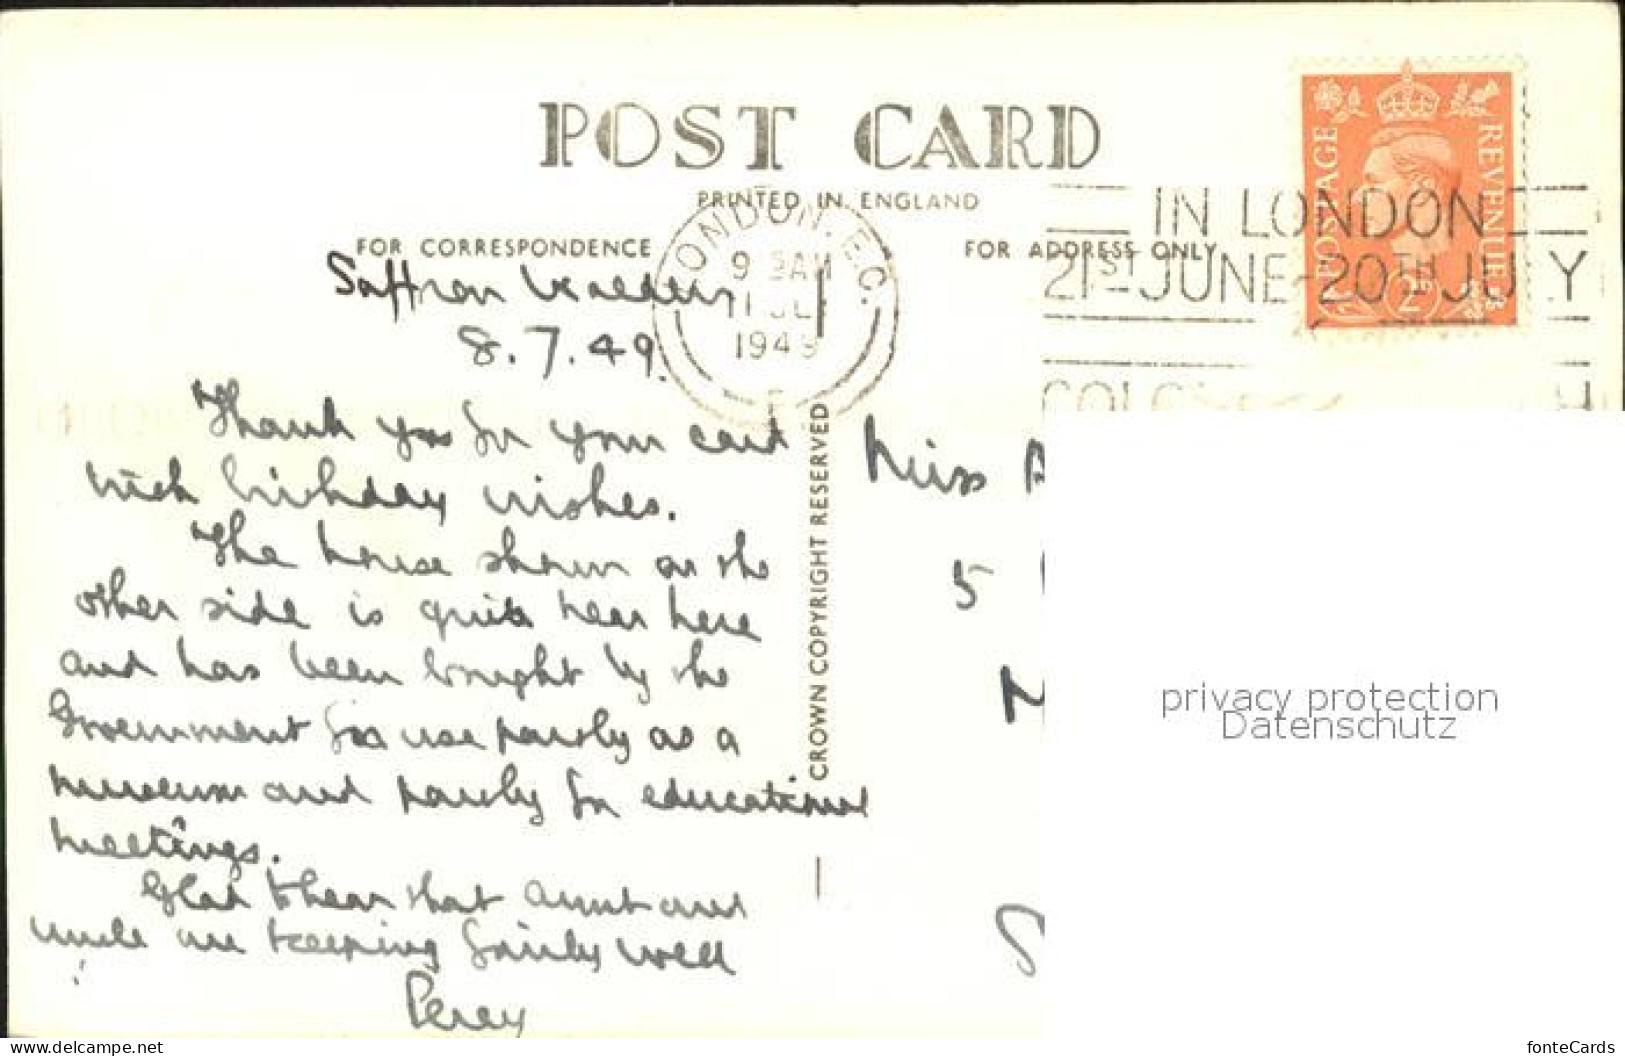 POST CARD
PRINTED IN ENGLAND
FOR CORRESPONDENCE
FOR ADDRESS ONLY
POSTAGE REVENUE
2D
LONDON. E.C.
9 AM
11 JLY
1949
IN LONDON
21ST JUNE-20TH JULY
Saffron Walden
8.7.49.
Thank you for your card
with birthday wishes.
The house shown on the
other side is quite near here
and has been bought by the
Government for use partly as a
museum and partly for educational
meetings.
Glad to hear that Aunt and
uncle are keeping fairly well
Percy
CROWN COPYRIGHT RESERVED
Miss
5
privacy protection
Datenschutz
www.delcampe.net
fonteCards